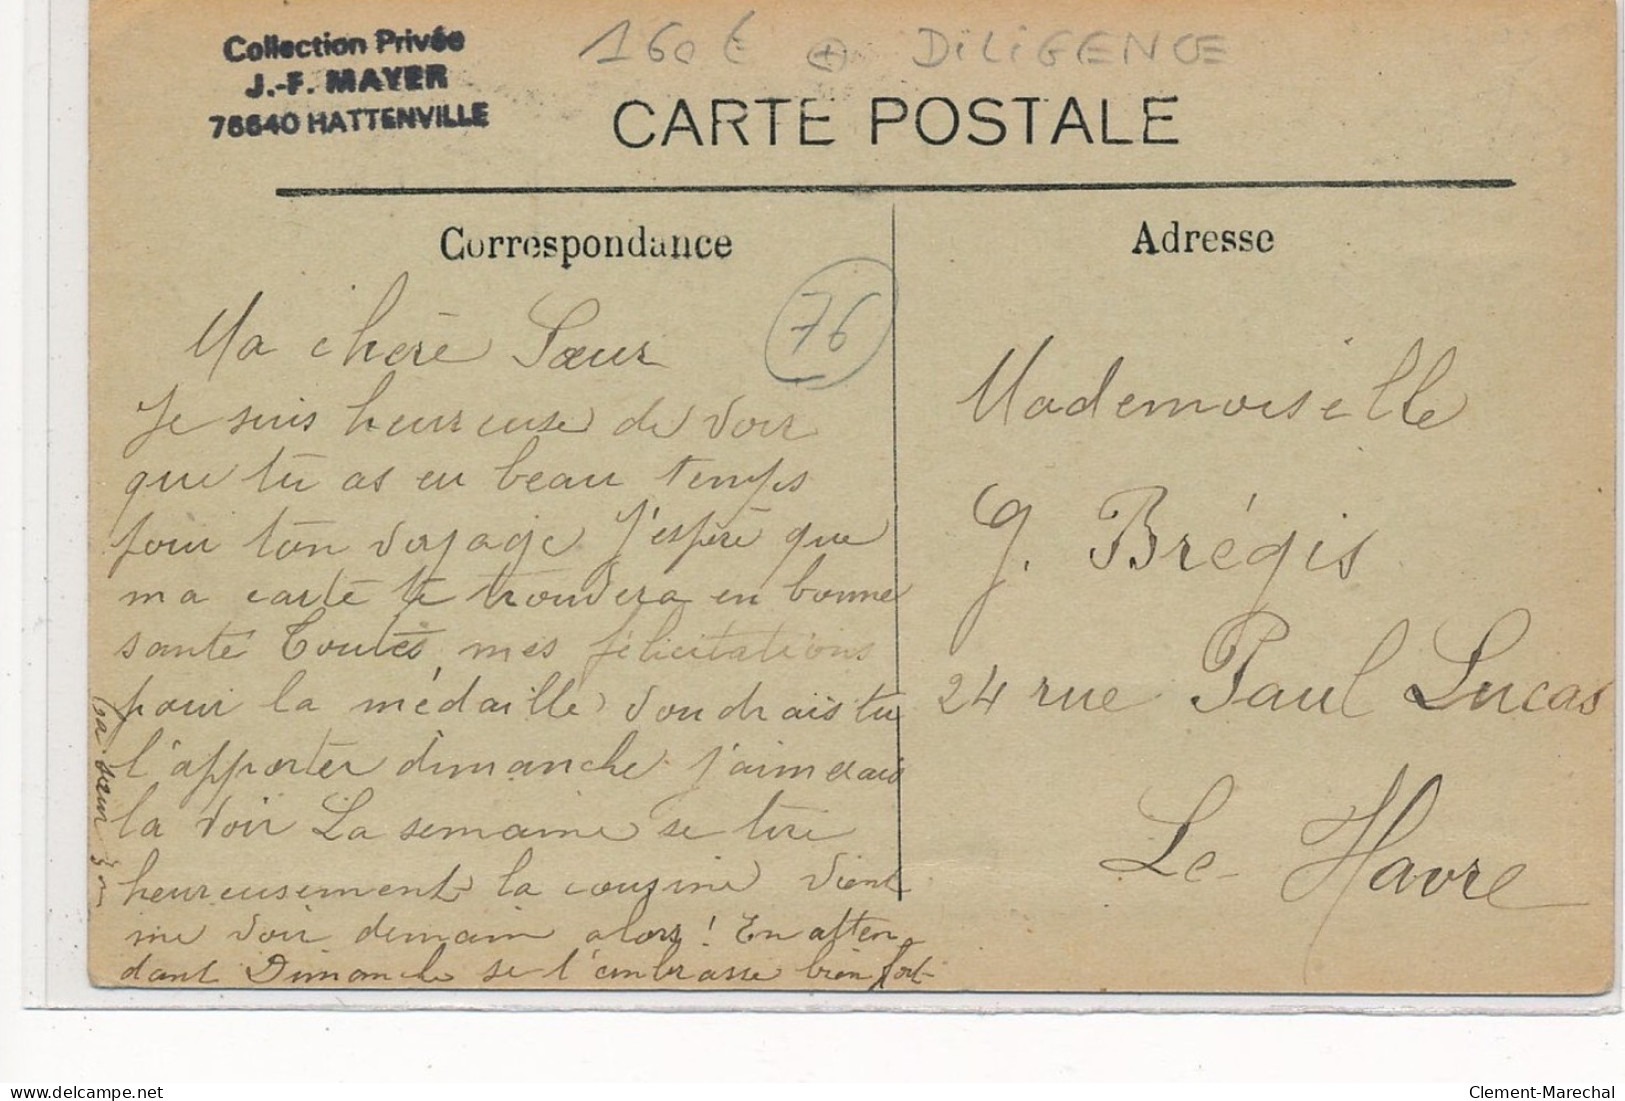 Collection Privée
J.-F. MAYER
76640 HATTENVILLE
160 € + DiLiGENCE
CARTE POSTALE
Correspondance
Adresse
76
Ma chère Sœur
Je suis heureuse de voir
que tu as eu beau temps
pour ton voyage J'espère que
ma carte te trouvera en bonne
santé Toutes mes félicitations
pour la médaille voudrais tu
l'apporter dimanche j'aimerais
la voir La semaine se tire
heureusement la cousine vient
me voir demain alors ! En atten
dant Dimanche je t'embrasse bien fort
ta sœur
Mademoiselle
G. Brégis
24 rue Paul Lucas
Le Havre
delcampe.net
Clement-Marechal